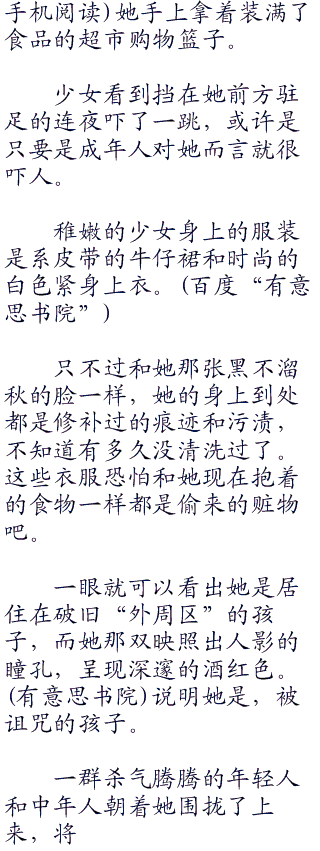 手机阅读)她手上拿着装满了
食品的超市购物篮子。
少女看到挡在她前方驻
足的连夜吓了一跳，或许是
只要是成年人对她而言就很
吓人。
稚嫩的少女身上的服装
是系皮带的牛仔裙和时尚的
白色紧身上衣。(百度“有意
思书院”)
只不过和她那张黑不溜
秋的脸一样，她的身上到处
都是修补过的痕迹和污渍，
不知道有多久没清洗过了。
这些衣服恐怕和她现在抱着
的食物一样都是偷来的赃物
吧。
一眼就可以看出她是居
住在破旧“外周区”的孩
子，而她那双映照出人影的
瞳孔，呈现深邃的酒红色。
(有意思书院)说明她是，被
诅咒的孩子。
一群杀气腾腾的年轻人
和中年人朝着她围拢了上
来，将